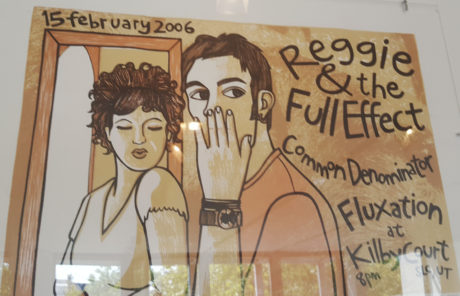 15 february 2006
Reggie
& the
Full Effect
Common Denominator
Fluxation
at
Kilby Court
8pm SLC, UT